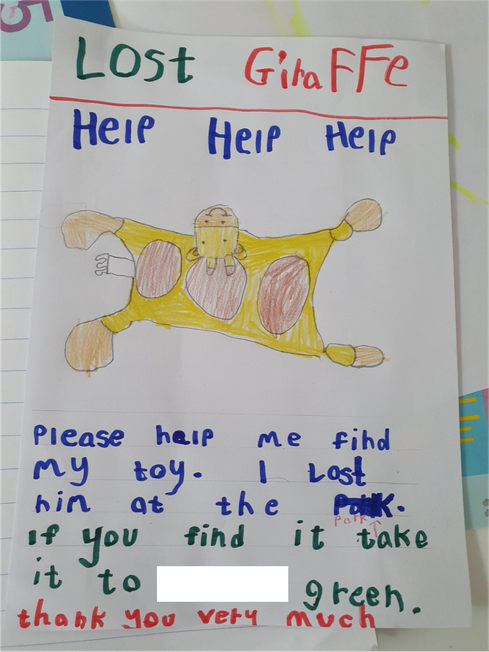 Lost GiraFFe
Help Help Help
Please help me find
my toy. I Lost
him at the Park.
park
if you find it take
it to green.
thank you very much